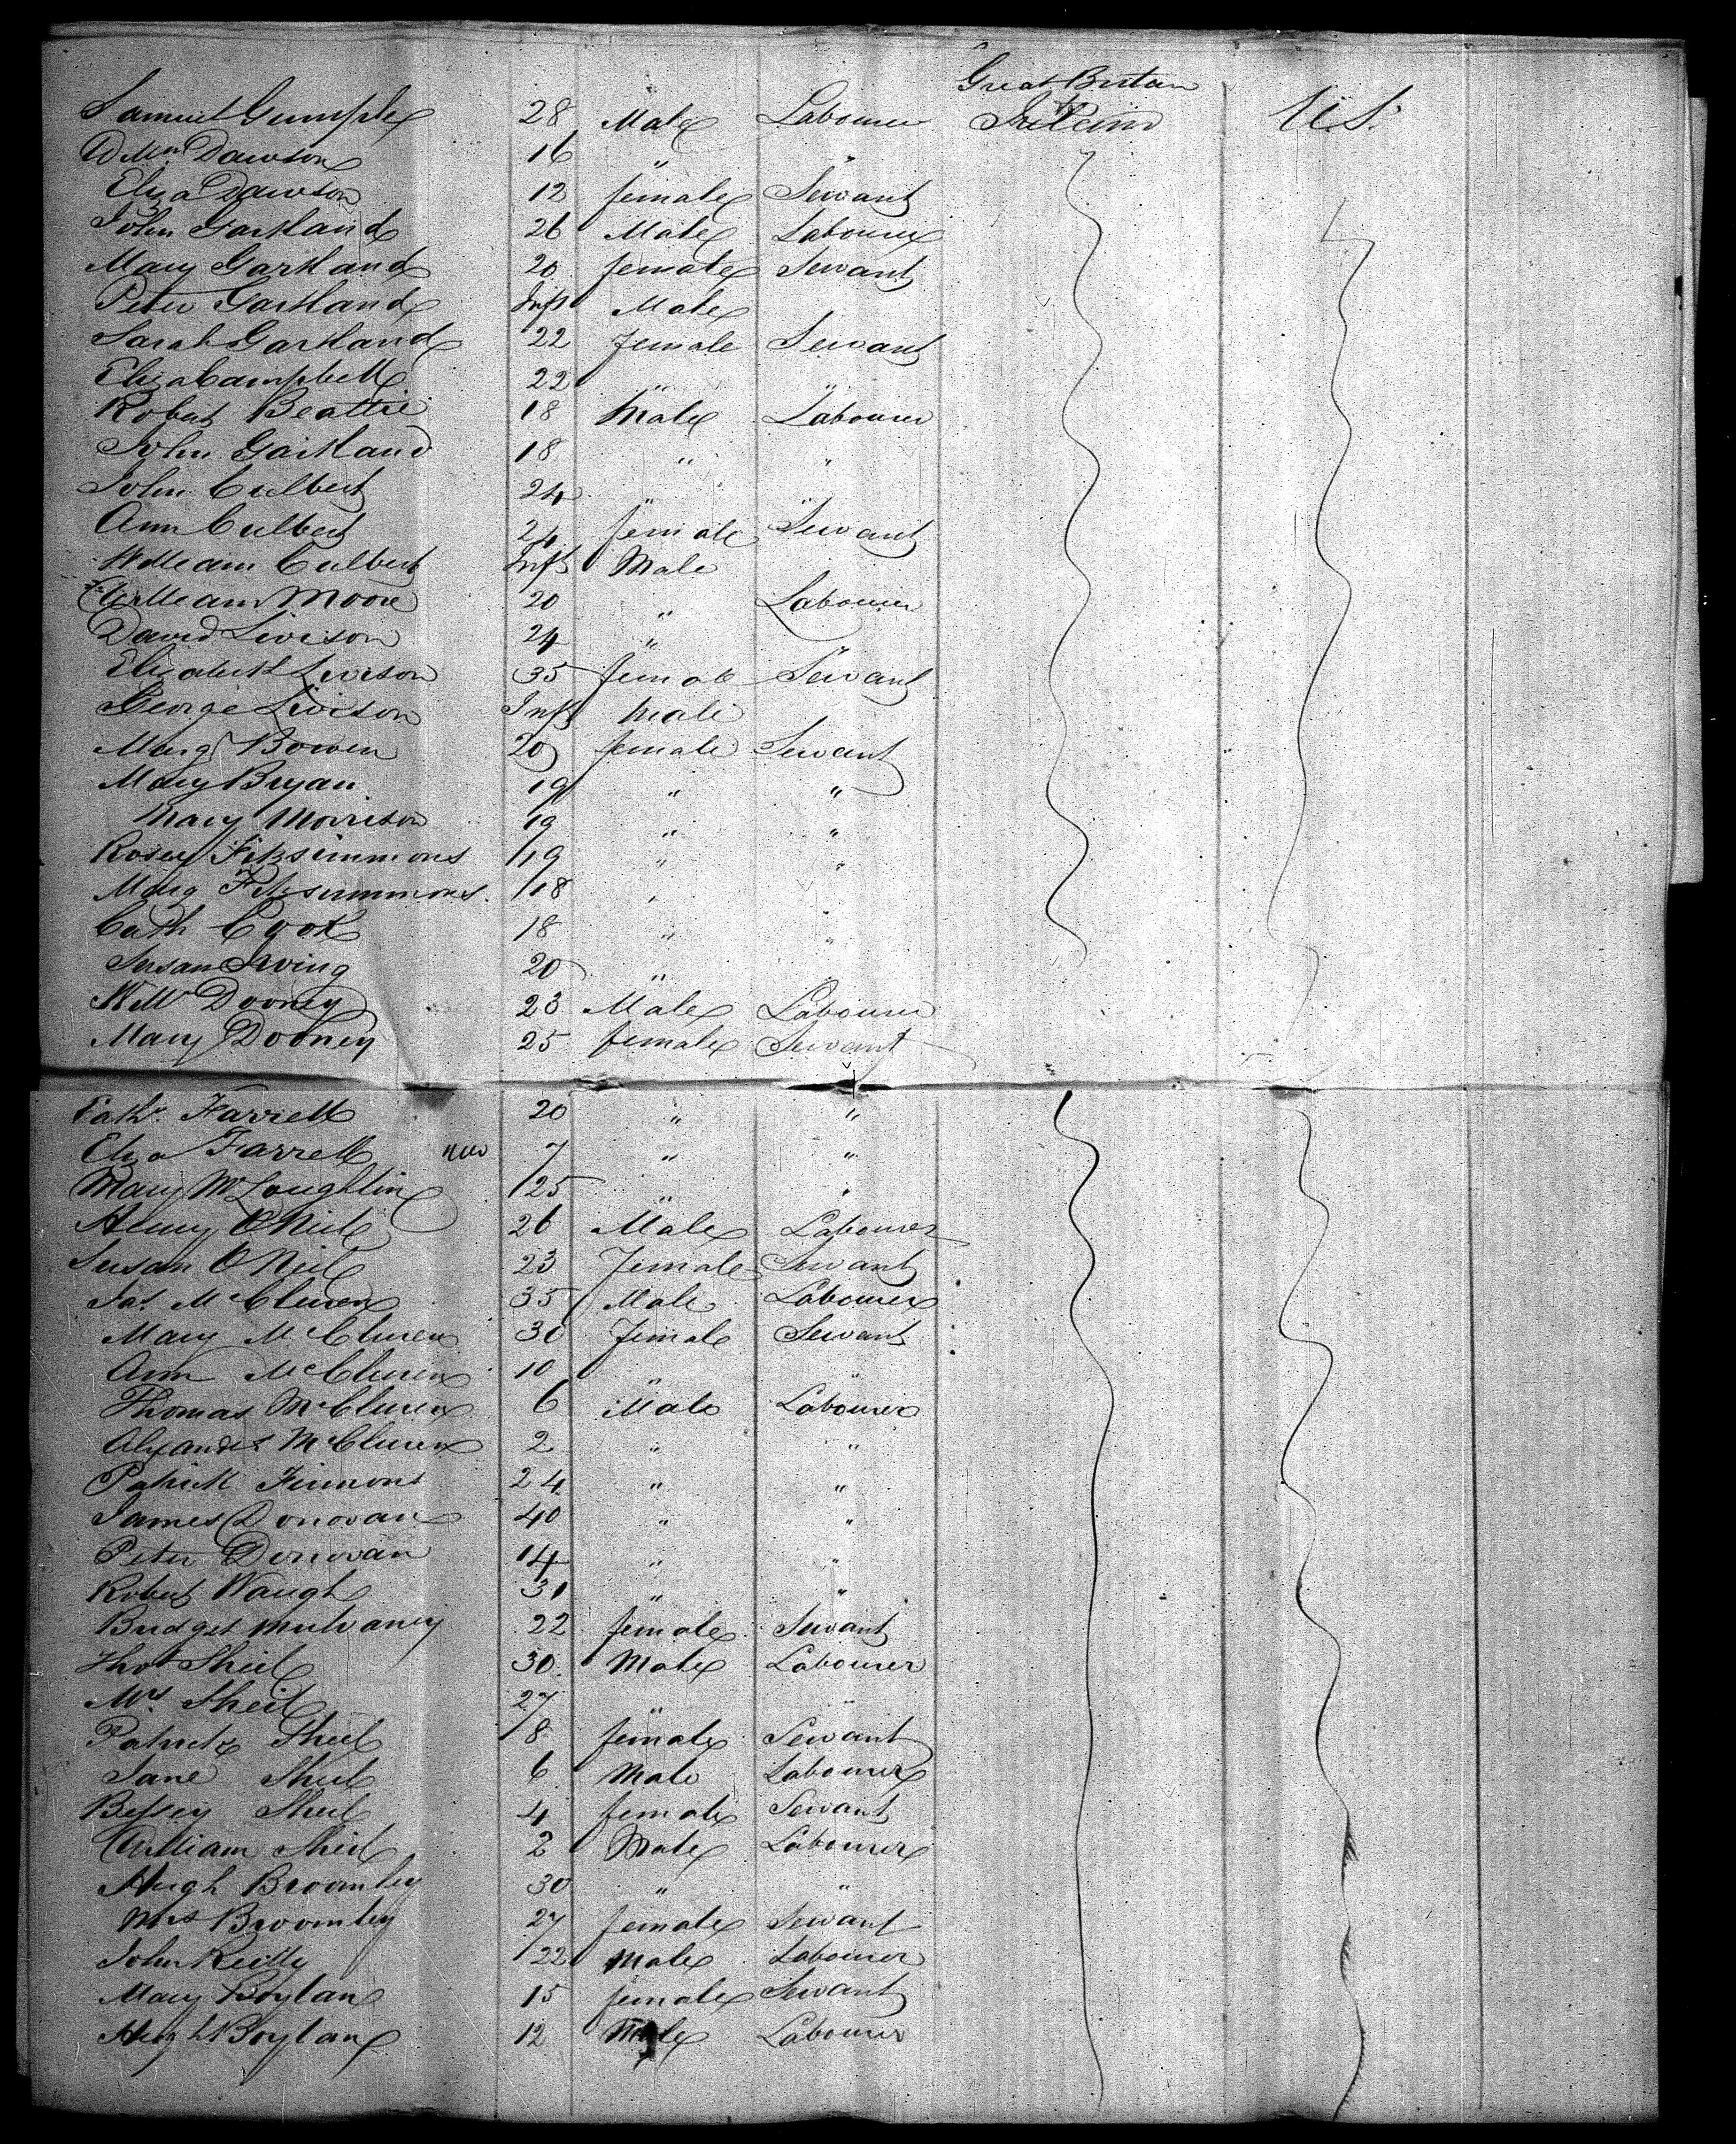 Great Britain
Samuel Gumple 28 Male Labourer Ireland U.S.
Wm Dawson 16 " "
Eliza Dawson 12 female Servant
John Gartland 26 Male Labourer
Mary Gartland 20 female Servant
Peter Gartland Inft Male
Sarah Gartland 22 Female Servant
Eliza Campbell 22 " "
Robert Beattie 18 Male Labourer
John Gartland 18 " "
John Culbert 24 " "
Ann Culbert 24 female Servant
William Culbert Inft Male
William Moore 20 " Labourer
David Livison 24 " "
Elizabeth Livison 35 female Servant
George Livison Inft Male
Marg Bowen 20 female Servant
Mary Bryan 19 " "
Mary Morrison 19 " "
Rosey Fitzsimmons 19 " "
Marg Fitzsimmons 18 " "
Cath Cook 18 " "
Susan Irving 20 "
Wm Dooney 23 Male Labourer
Mary Dooney 25 female Servant
Cathe. Farrell 20 " "
Eliza Farrell 7 " "
Mary McLoughlin 25 " "
Henry O Neil 26 Male Labourer
Susan O Neil 23 Female Servant
Jas. McCluren 35 Male Labourer
Mary McCluren 30 Female Servant
Ann McCluren 10 " "
Thomas McCluren 6 Male Labourer
Alexander McCluren 2 " "
Patrick 24 " "
James Donovan 40 " "
Peter Donovan 14 " "
Robert Waugh 31 " "
Bridget Mulvaney 22 female Servant
Thos Sheil 30 Male Labourer
Mrs Sheil 27 " "
Patrick Sheil 8 female Servant
Jane Sheil 6 Male Labourer
Bessey Sheil 4 female Servant
William Sheil 2 Male Labourer
Hugh Broomley 30 " "
Mrs Broomley 27 female Servant
John Reilly 22 Male Labourer
Mary Boylan 15 female Servant
Hugh Boylan 12 Male Labourer